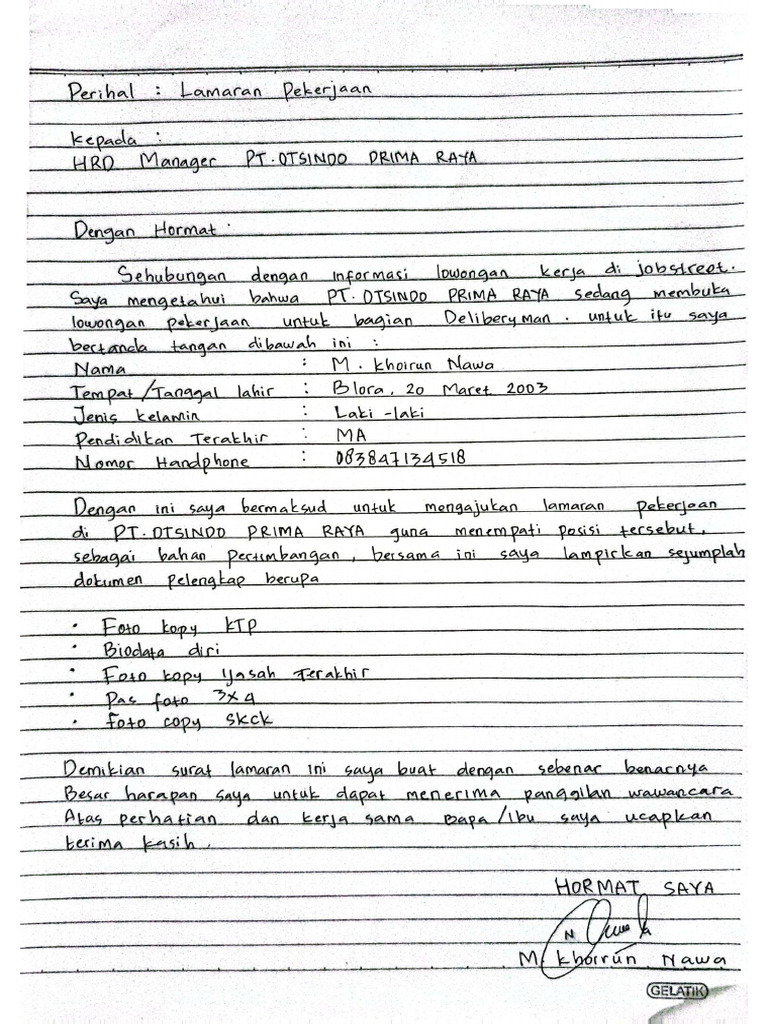 Perihal : Lamaran Pekerjaan
Kepada :
HRD Manager PT. OTSINDO PRIMA RAYA
Dengan Hormat.
Sehubungan dengan informasi lowongan kerja di jobstreet.
Saya mengetahui bahwa PT. OTSINDO PRIMA RAYA sedang membuka
lowongan pekerjaan untuk bagian Deliberyman. untuk itu saya
bertanda tangan dibawah ini :
Nama : M. Khoirun Nawa
Tempat/Tanggal lahir : Blora, 20 Maret 2003
Jenis Kelamin : Laki-laki
Pendidikan Terakhir : MA
Nomor Handphone : 083847134518
Dengan ini saya bermaksud untuk mengajukan lamaran pekerjaan
di PT. OTSINDO PRIMA RAYA guna menempati posisi tersebut,
sebagai bahan pertimbangan, bersama ini saya lampirkan sejumplah
dokumen pelengkap berupa
• Foto kopy KTP
• Biodata diri
• Foto kopy Iyasah Terakhir
• Pas foto 3x4
• Foto copy SKCK
Demikian surat lamaran ini saya buat dengan sebenar benarnya
Besar harapan saya untuk dapat menerima panggilan wawancara
Atas perhatian dan kerja sama Bapa/Ibu saya ucapkan
terima kasih.
HORMAT SAYA
M Khoirun Nawa
GELATIK